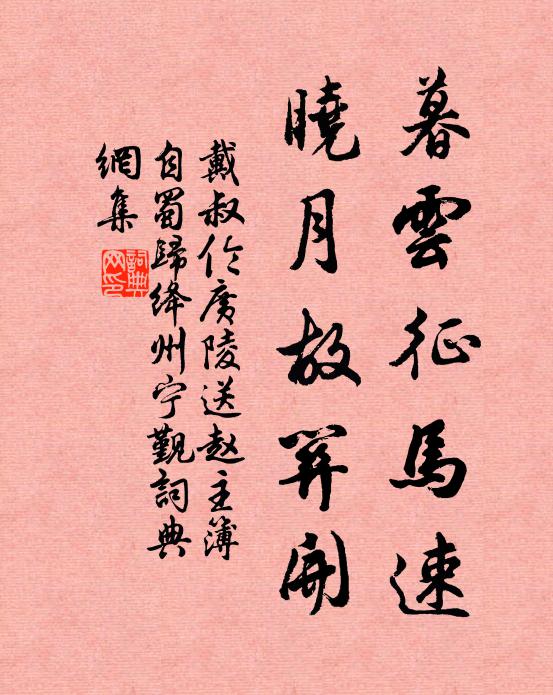 暮雲征馬速
曉月故關開
戴叔伦廣陵送赵主簿
自蜀歸绛州宁覲詞典
網集
詞典
网印